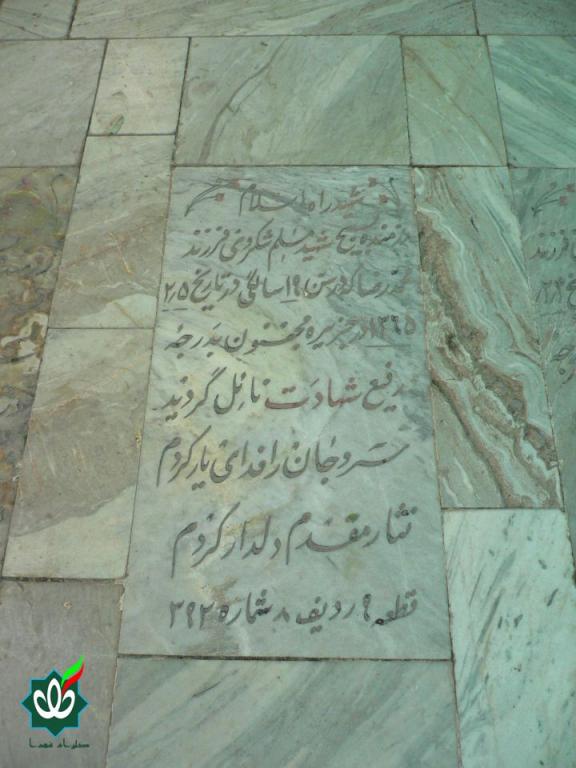 شهید راه اسلام
رزمنده بسیج شهید مسلم شکروی فرزند
محمدرضا که در سن ۱۹ سالگی در تاریخ ۲/۵
۱۳۶۵ در جزیره مجنون بدرجه
رفیع شهادت نائل گردید
سر و جان را فدای یار کردم
نثار مقدم دلدار کردم
قطعه ۹ ردیف ۸ شماره ۳۹۲
فرزند
گلزار شهدا